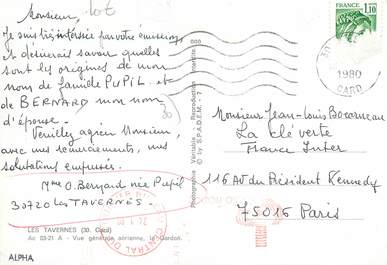 Monsieur,
Je suis très intéressée par votre émission,
et désirerais savoir quelles
sont les origines de mon
nom de famille PUPIL et
de BERNARD mon nom
d'épouse.
Veuillez agréer Monsieur,
avec mes remerciements, mes
salutations empressées.
Mme O. Bernard née Pupil
30720 LES TAVERNES.
LES TAVERNES (30. Gard)
Ac 03-21 A - Vue générale aérienne, le Gardon.
ALPHA
Photographie Véritable - Reproduction Interdite
© by S.P.A.D.E.M. - 7
1,10
30
1980
GARD
Monsieur Jean-Louis Beaucarnot
La clé verte
France Inter
116 Av du Président Kennedy
75016 Paris
CENTRAL